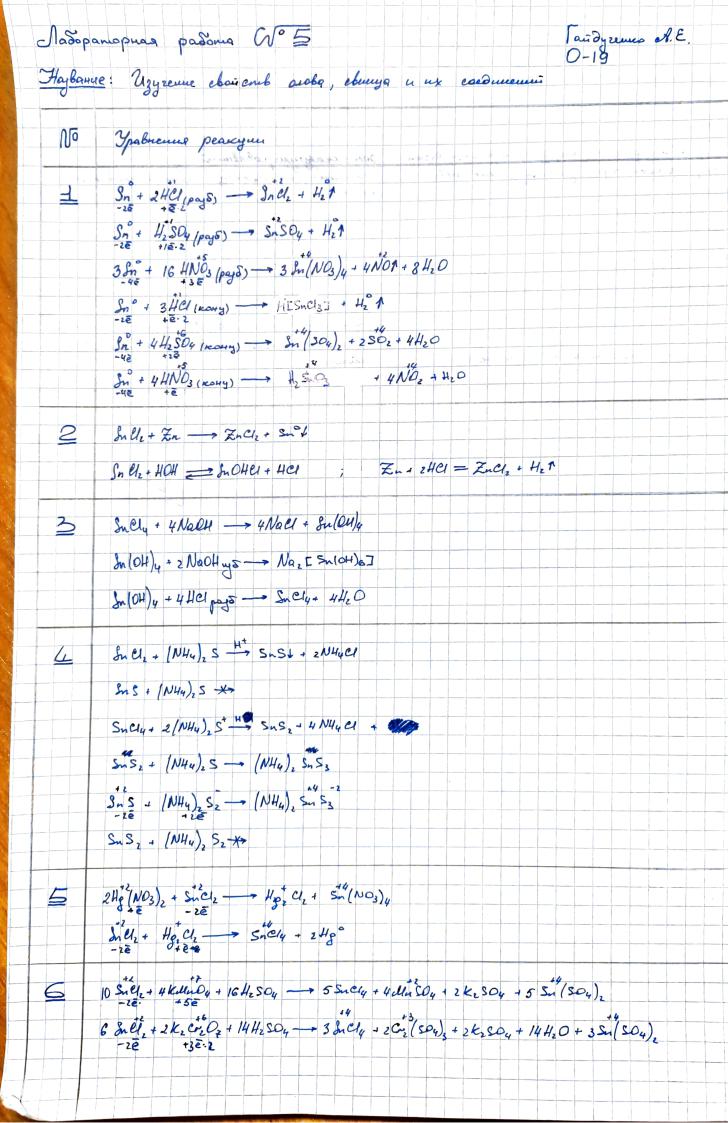 Лабораторная работа № 5
Гайдученко А.Е.
О-19
Название: Изучение свойств олова, свинца и их соединений
№ Уравнения реакции
1
Sn⁰ + 2HCl (разб) → SnCl₂ + H₂⁰↑
-2ē +ē·2
Sn⁰ + H₂SO₄ (разб) → SnSO₄ + H₂⁰↑
-2ē +1ē·2
3Sn⁰ + 16HNO₃ (разб) → 3Sn(NO₃)₄ + 4NO↑ + 8H₂O
-4ē +3ē
Sn⁰ + 3HCl (конц) → H[SnCl₃] + H₂⁰↑
-2ē +ē·2
Sn⁰ + 4H₂SO₄ (конц) → Sn(SO₄)₂ + 2SO₂ + 4H₂O
-4ē +2ē
Sn⁰ + 4HNO₃ (конц) → H₂SnO₃ + 4NO₂ + H₂O
-4ē +ē
2
SnCl₂ + Zn → ZnCl₂ + Sn⁰↓
SnCl₂ + HOH ⇄ SnOHCl + HCl ; Zn + 2HCl = ZnCl₂ + H₂↑
3
SnCl₄ + 4NaOH → 4NaCl + Sn(OH)₄
Sn(OH)₄ + 2NaOH изб → Na₂[Sn(OH)₆]
Sn(OH)₄ + 4HCl разб → SnCl₄ + 4H₂O
4
SnCl₂ + (NH₄)₂S –H⁺→ SnS↓ + 2NH₄Cl
SnS + (NH₄)₂S ↛
SnCl₄ + 2(NH₄)₂S –H→ SnS₂ + 4NH₄Cl +
SnS₂ + (NH₄)₂S → (NH₄)₂SnS₃
SnS + (NH₄)₂S₂ → (NH₄)₂SnS₃
-2ē +2ē
SnS₂ + (NH₄)₂S₂ ↛
5
2Hg(NO₃)₂ + SnCl₂ → Hg₂Cl₂ + Sn(NO₃)₄
+ē -2ē
SnCl₂ + Hg₂Cl₂ → SnCl₄ + 2Hg⁰
-2ē +ē
6
10SnCl₂ + 4KMnO₄ + 16H₂SO₄ → 5SnCl₄ + 4MnSO₄ + 2K₂SO₄ + 5Sn(SO₄)₂
-2ē +5ē
6SnCl₂ + 2K₂Cr₂O₇ + 14H₂SO₄ → 3SnCl₄ + 2Cr₂(SO₄)₃ + 2K₂SO₄ + 14H₂O + 3Sn(SO₄)₂
-2ē +3ē·2